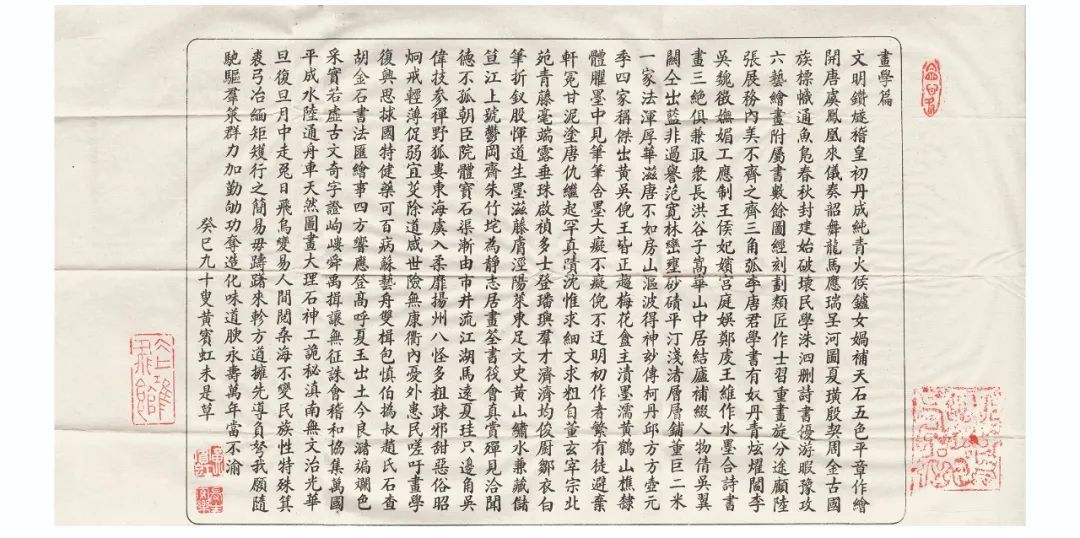 畫學篇
文明鑽燧稽皇初丹成純青火候鑪女媧補天石五色平章作繪
開唐虞鳳凰來儀奏韶舞龍馬應瑞呈河圖夏璜殷契周金古國
族標幟通魚鳧春秋封建始破壞民學洙泗刪詩書優游暇豫攻
六藝繪畫附屬書數餘圖經刻劃類匠作士習重畫旋分途顧陸
張展務內美不齊之齊三角弧李唐君學書有奴丹青炫耀閻李
吳魏徵嫵媚工應制王侯妃嬪宮庭娛鄭虔王維作水墨合詩書
畫三絕俱兼取衆長洪谷子嵩華山中居結廬補綴人物倩吳翼
關仝出藍非過譽范寬林巒壅砂磧平汀淺渚層層鋪董巨二米
一家法渾厚華滋唐不如房山漚波得神妙傳柯丹邱方方壺元
季四家稱傑出黃吳倪王皆正趨梅花盦主漬墨濡黃鶴山樵隸
體臞墨中見筆筆含墨大癡不癡倪不迂明初作者繁有徒避棄
軒冕甘泥塗唐仇繼起罕真蹟沈惟求細文求粗自董玄宰宗北
苑青藤毫端露垂珠啟禎多士登璠璵羣才濟濟均俊廚鄒衣白
筆折釵股惲道生墨滋藤膚涇陽萊東足文史黃山繡水兼藏儲
笪江上虩鬱岡齊朱竹垞為靜志居畫筌書筏會真賞殫見洽聞
德不孤朝臣院體寶石渠漸由市井流江湖馬遠夏珪只邊角吳
偉技參禪野狐婁東海虞入柔靡揚州八怪多粗疎邪甜惡俗昭
炯戒輕薄促弱宜芟除道咸世險無康衢內憂外患民嗟吁畫學
復興思救國特健藥可百病蘇藝舟雙楫包慎伯撝叔趙氏石查
胡金石書法匯繪事四方響應登高呼夏玉出土今良渚斒斕色
采實若虛古文奇字證岣嶁舜禹揖讓無征誅會稽和協集萬國
平成水陸通舟車天然圖畫大理石神工詭秘滇南無文治光華
旦復旦月中走兔日飛烏變易人間閱桑海不變民族性特殊箕
裘弓冶緬矩矱行之簡易毋躊躇來軫方遒擁先導負弩我願隨
馳驅羣策群力加勤劬功奪造化味道腴永壽萬年當不渝
癸巳九十叟黃賓虹未是草